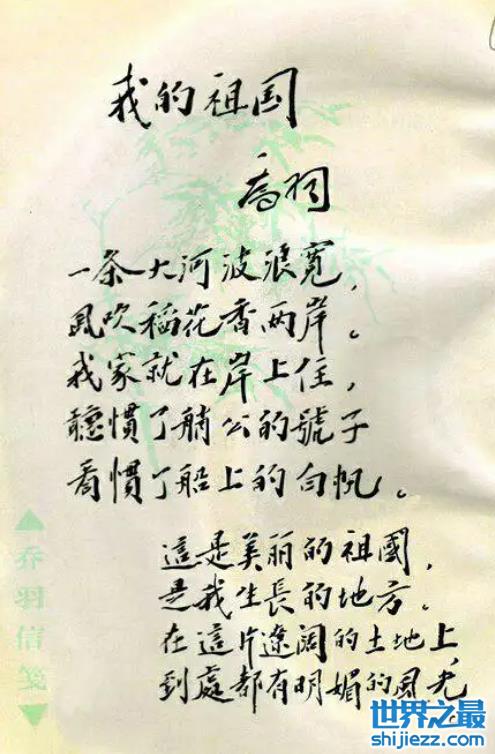 我的祖国
喬羽
一条大河波浪寬，
風吹稻花香两岸。
我家就在岸上住，
聽慣了艄公的號子
看慣了船上的白帆。
這是美丽的祖國，
是我生長的地方。
在這片遼阔的土地上，
到處都有明媚的風光。
乔羽信笺
世界之最
shijiezz.com